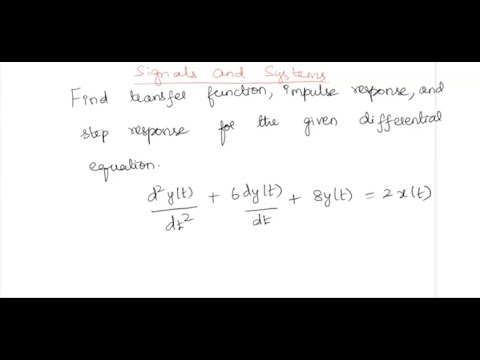 Signals and Systems
Find transfer function, impulse response, and
step response for the given differential
equation.
d²y(t)/dt² + 6dy(t)/dt + 8y(t) = 2x(t)